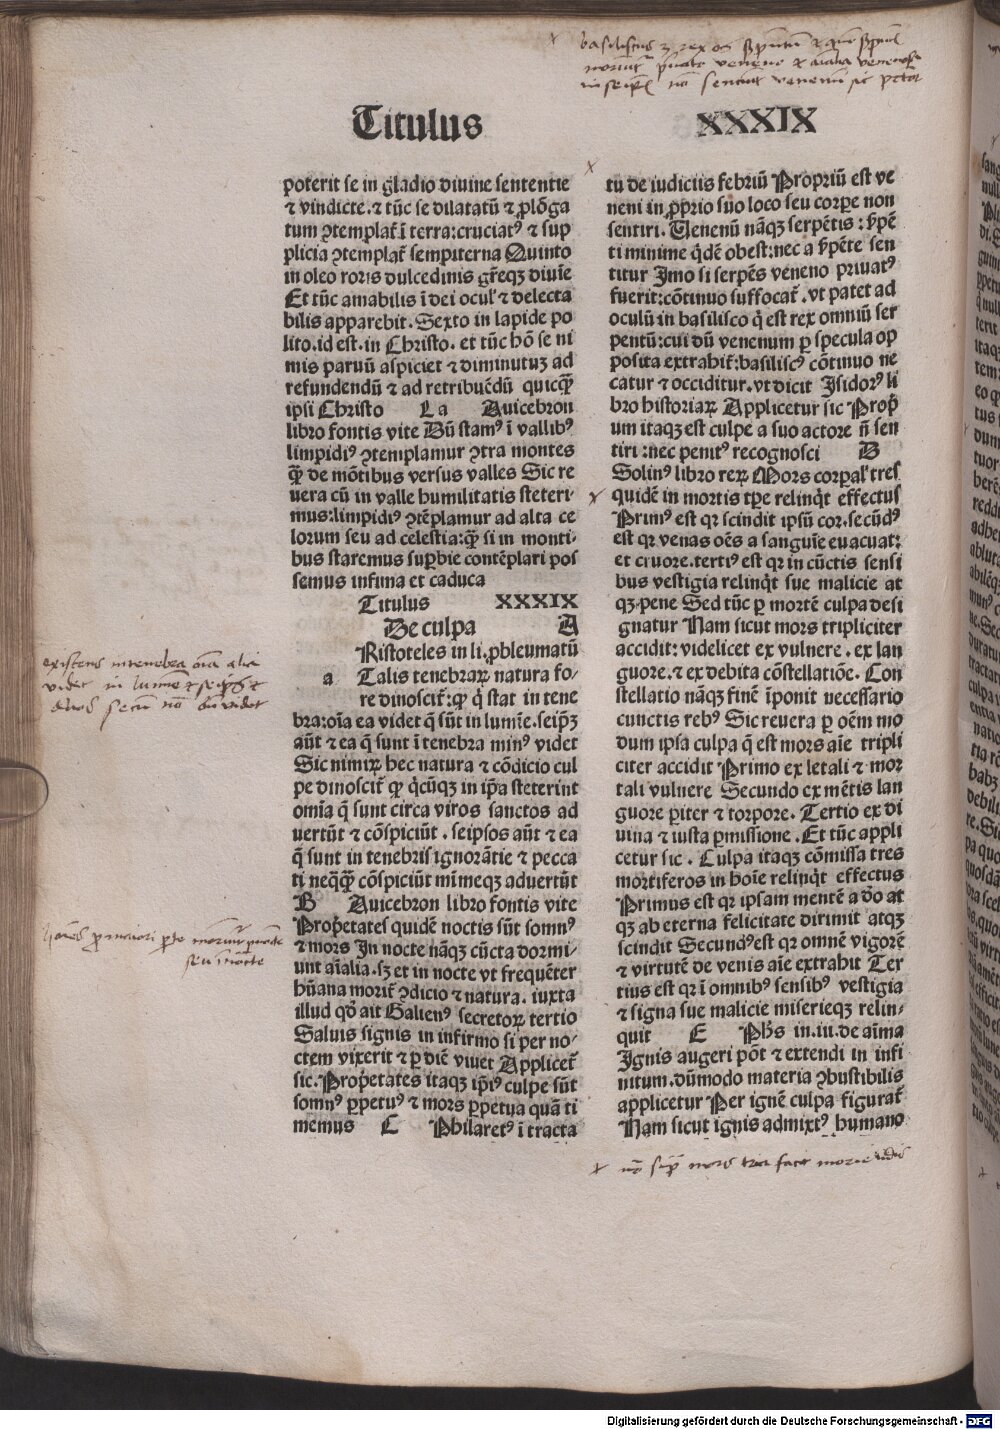 Titulus XXXIX
poterit se in gladio diuine sententie
⁊ vindicte.⁊ tūc se dilatatū ⁊ ꝓlōga
tum ꝯtemplat̄ ī terra:cruciatꝰ ⁊ sup
plicia ꝯtemplat̄ sempiterna Quinto
in oleo roris dulcedinis gr̄eqꝫ diuīe
Et tūc amabilis ī dei ocul' ⁊ delecta
bilis apparebit. Sexto in lapide po
lito.id est.in Christo. et tūc hō se ni
mis paruū aspiciet ⁊ diminutuꝫ ad
refundendū ⁊ ad retribuēdū quicq̄ꝫ
ipsi Christo La Auicebron
libro fontis vite Dū stamꝰ ī vallibꝰ
limpidiꝰ ꝯtemplamur ꝯtra montes
q̄ꝫ de mōtibus versus valles Sic re
uera cū in valle humilitatis steteri-
mus:limpidiꝰ ꝯtēplamur ad alta ce
lorum seu ad celestia:q̄ꝫ si in monti-
bus staremus suꝑbie contēplari pos
semus infima et caduca
Titulus XXXIX
De culpa A
a Ristoteles in li.ꝓbleumatū
Talis tenebraꝝ natura fo-
re dinoscit̄:ꝙ q̇ stat in tene
bra:oīa ea videt q̄ sūt in lumīe.seip̄ꝫ
aūt ⁊ ea q̄ sunt ī tenebra minꝰ videt
Sic nimiꝝ hec natura ⁊ cōdicio cul
pe dinoscit̄ ꝙ q̇cūqꝫ in ip̄a steterint
omīa q̄ sunt circa viros sanctos ad
uertūt ⁊ cōspiciūt. seipsos aūt ⁊ ea
q̄ sunt in tenebris ignorātie ⁊ pecca
ti neqq̄ꝫ cōspiciūt mīmeqꝫ aduertūt
B Auicebron libro fontis vite
Prop̄etates quidē noctis sūt somnꝰ
⁊ mors In nocte nāqꝫ cūcta dormi-
unt aīalia.sꝫ et in nocte vt frequēter
hūana morit̄ ꝯdicio ⁊ natura. iuxta
illud qd̓ ait Galienꝰ secretoꝝ tertio
Saluis signis in infirmo si per no-
ctem vixerit ⁊ ꝑ diē viuet Applicet̄
sic.Prop̄etates itaqꝫ ip̄iꝰ culpe sūt
somnꝰ ꝑpetuꝰ ⁊ mors ꝑpetua quā ti
memus C Philaretꝰ ī tracta
tu de iudiciis febriū Propriū est ve
neni in ꝓprio suo loco seu corꝑe non
sentiri. Uenenū nāqꝫ serpētis : s̄pē
ti minime q̇dē obest:nec a s̄pēte sen
titur Imo si serpēs veneno priuatꝰ
fuerit:cōtinuo suffocat̄. vt patet ad
oculū in basilisco q̇ est rex omniū ser
pentū:cui dū venenum ꝑ specula op
posita extrahit̄:basiliscꝰ cōtinuo ne
catur ⁊ occiditur.vt dicit Isidorꝰ li
bro historiaꝝ Applicetur sic Prop̄
um itaqꝫ est culpe a suo actore n̄ sen
tiri:nec penitꝰ recognosci D
Solinꝰ libro reꝝ Mors corꝑal' tres
quidē in mortis tꝑe relinq̇t effectus
Primꝰ est qꝛ scindit ipsū cor.secūdꝰ
est qꝛ venas oēs a sanguīe euacuat:
et cruore.tertiꝰ est qꝛ in cūctis sensi
bus vestigia relinq̇t sue malicie at
qꝫ pene Sed tūc ꝑ mortē culpa desi
gnatur Nam sicut mors tripliciter
accidit: videlicet ex vulnere. ex lan
guore.⁊ ex debita cōstellatiōe. Con
stellatio nāqꝫ finē īponit necessario
cunctis rebꝰ Sic reuera ꝑ oēm mo
dum ipsa culpa q̄ est mors aīe tripli
citer accidit Primo ex letali ⁊ mor
tali vulnere Secundo ex mētis lan
guore ꝑiter ⁊ torpore. Tertio ex di
uina ⁊ iusta ꝑmissione. Et tūc appli
cetur sic. Culpa itaqꝫ cōmissa tres
mortiferos in hoīe relinq̇t effectus
Primus est qꝛ ipsam mentē a dō at
qꝫ ab eterna felicitate dirimit atqꝫ
scindit Secundꝰest qꝛ omnē vigorē
⁊ virtutē de venis aīe extrahit Ter
tius est qꝛ ī omnibꝰ sensibꝰ vestigia
⁊ signa sue malicie miserieqꝫ relin-
quit E Ph̄s in.iii.de aīma
Ignis augeri pōt ⁊ extendi in infi
nitum.dūmodo materia ꝯbustibilis
applicetur Per ignē culpa figurat̄
Nam sicut ignis admixtꝰ humano
Digitalisierung gefördert durch die Deutsche Forschungsgemeinschaft - DFG